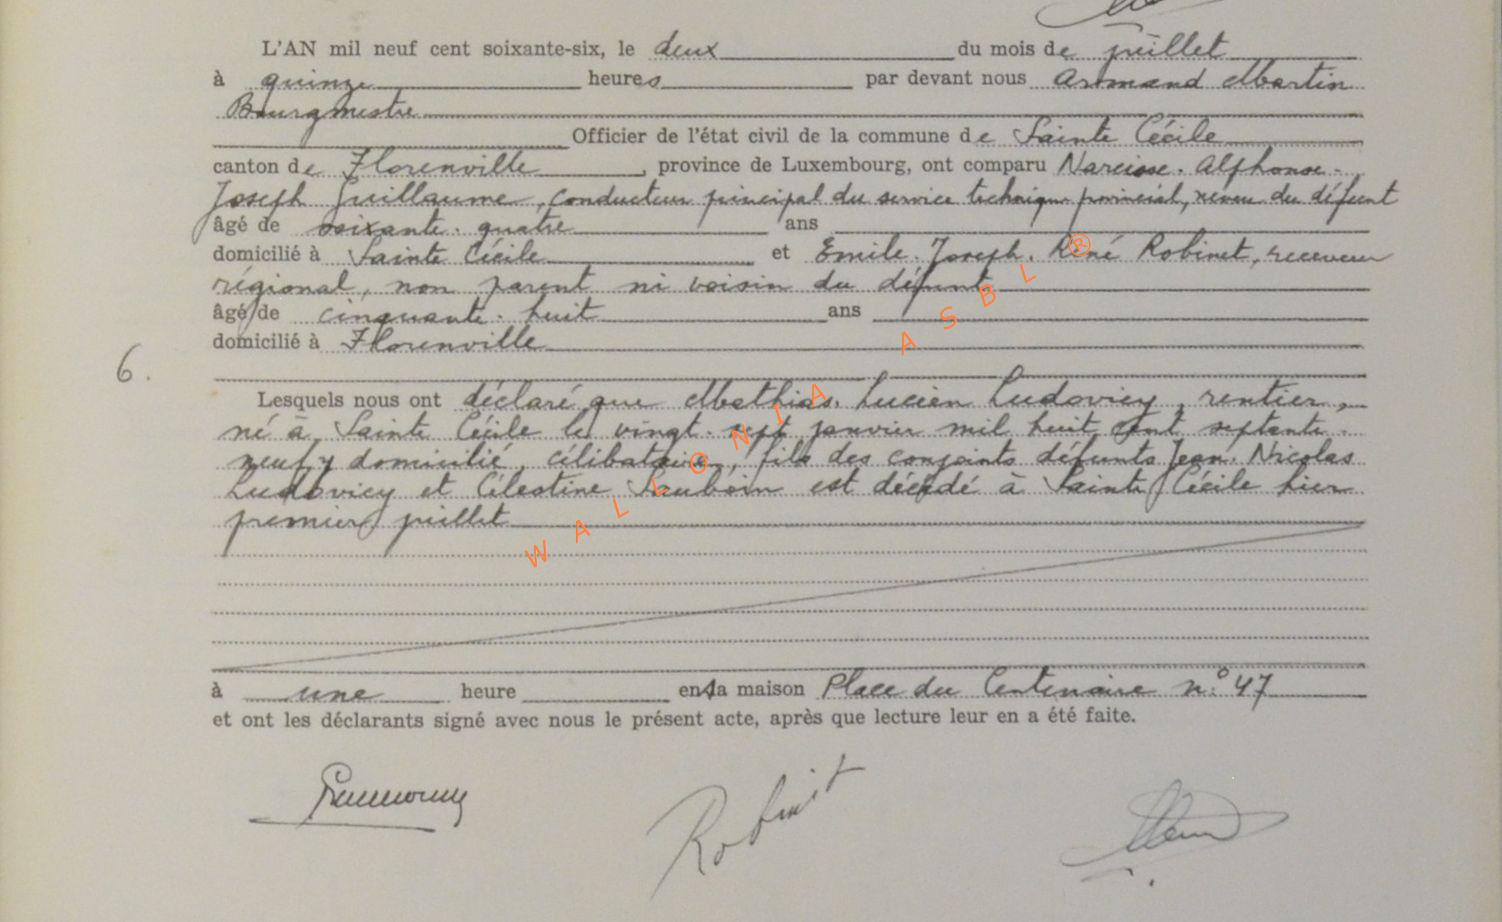 L'AN mil neuf cent soixante-six, le deux du mois de juillet
à quinze heures par devant nous Armand Martin
Bourgmestre
Officier de l'état civil de la commune de Sainte Cécile
canton de Florenville, province de Luxembourg, ont comparu Narcisse. Alphonse.
Joseph Guillaume, conducteur principal du service technique provincial, neveu du défunt
âgé de soixante. quatre ans
domicilié à Sainte Cécile et Emile. Joseph. René Robinet, receveur
régional, non parent ni voisin du défunt
âgé de cinquante. huit ans
domicilié à Florenville
6.
Lesquels nous ont déclaré que Mathias. Lucien Ludovicy, rentier,
né à Sainte Cécile le vingt. sept janvier mil huit cent septante.
neuf, y domicilié, célibataire, fils des conjoints défunts Jean. Nicolas
Ludovicy et Célestine Sauboin est décédé à Sainte Cécile hier
premier juillet
à une heure en la maison Place du Centenaire n:° 47
et ont les déclarants signé avec nous le présent acte, après que lecture leur en a été faite.
Robinet
WALLONIA ASBL ®